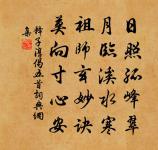 日照孤峰翠
月臨溪水寒
祖師玄妙訣
莫向寸心安
釋子淳偈五首詞典網
集